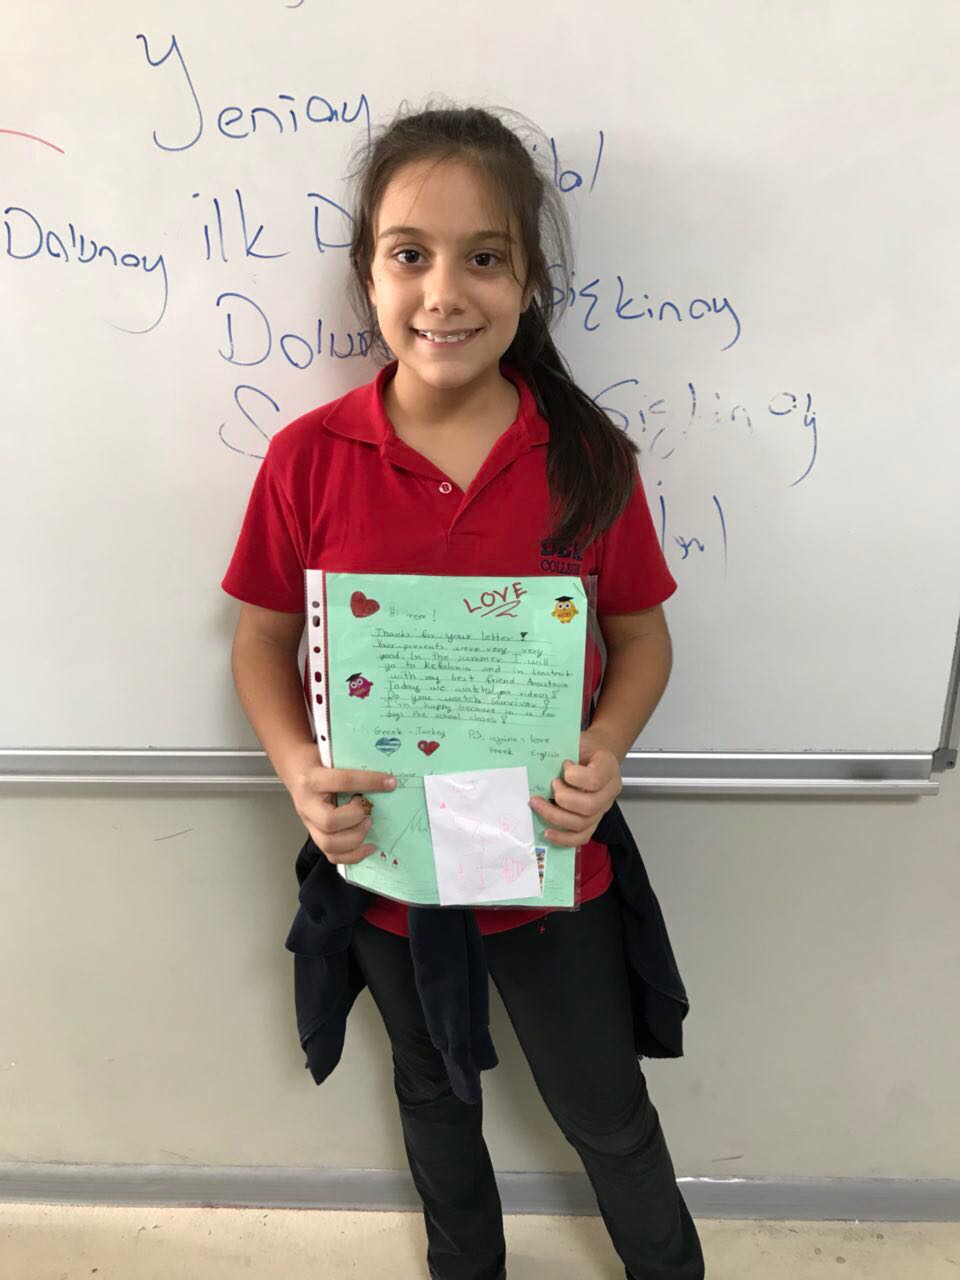 Yeniay
ilk D
Dolunay
Şişkinay
Dolun
Şişkinay
COLLEGE
LOVE
Hi rem!
Thanks for your letter!
Your presents were very very
good. In the summer I will
go to kefalonia and in Loutraki
with my best friend Anastasia
Today we watch your videos!
Do you watch Survivor?
I'm happy because in a few
days the school closes!
Greek - Turkey
P.S. agapi = love
Greek English
to